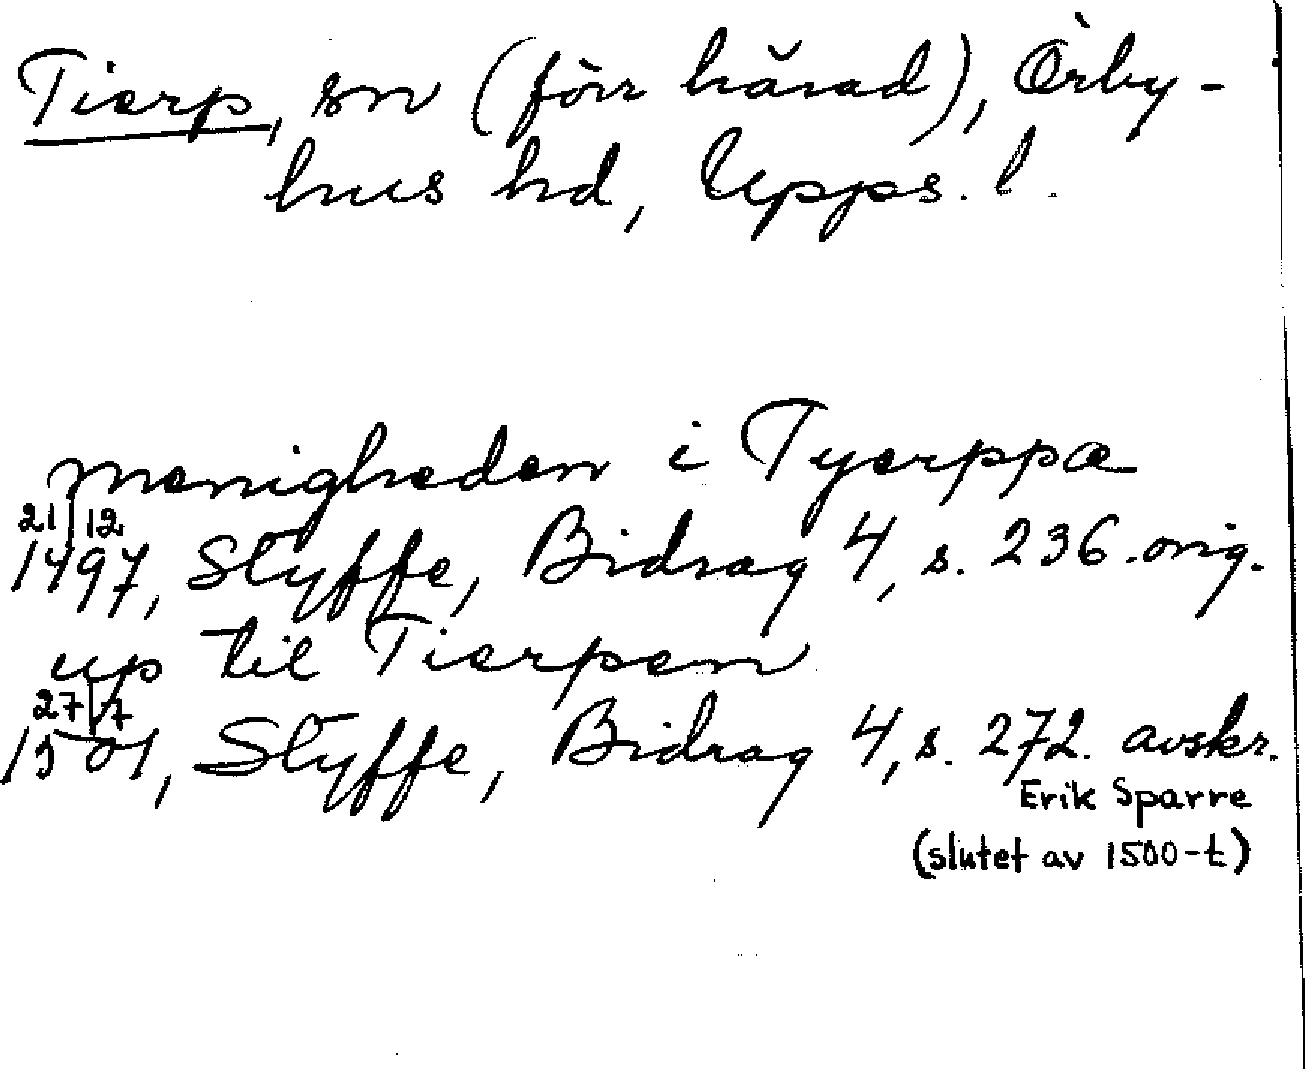 Tierp, sn (förr härad), Örby-
hus hd, Upps. l.
menigheden i Tyerppæ
21/12
1497, Styffe, Bidrag 4, s. 236. orig.
up til Tierpen
27/7
1501, Styffe, Bidrag 4, s. 272. avskr.
Erik Sparre
(slutet av 1500-t)